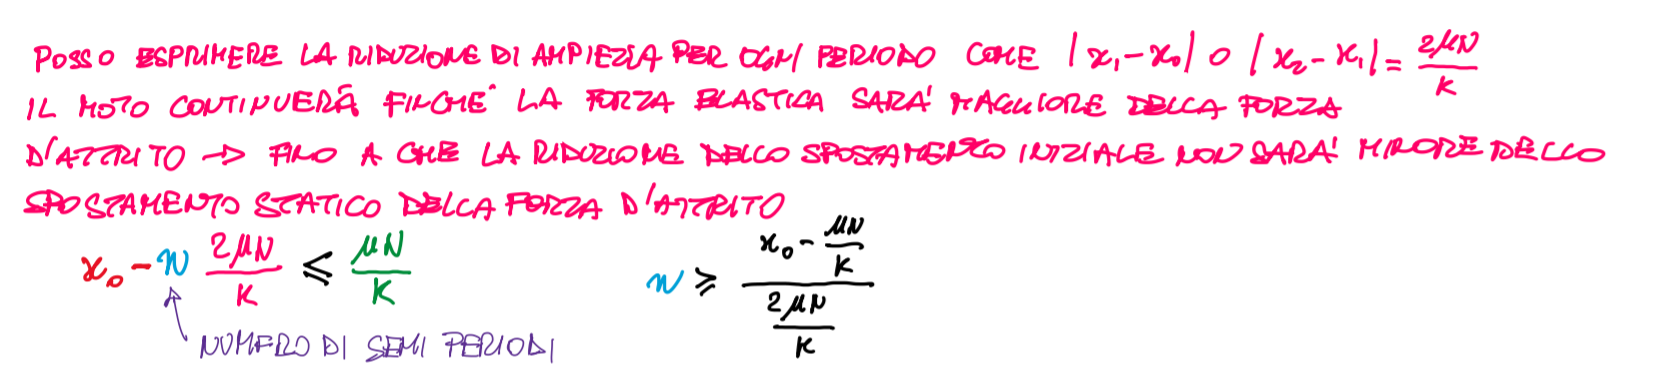 POSSO ESPRIMERE LA RIDUZIONE DI AMPIEZZA PER OGNI PERIODO COME |x₁-x₀| O |x₂-x₁| = 2μN/K
IL MOTO CONTINUERÀ FINCHÈ LA FORZA ELASTICA SARA' MAGGIORE DELLA FORZA
D'ATTRITO → FINO A CHE LA RIDUZIONE DELLO SPOSTAMENTO INIZIALE NON SARA' MINORE DELLO
SPOSTAMENTO STATICO DELLA FORZA D'ATTRITO
x₀ - n 2μN/K ≤ μN/K
n ≥ (x₀ - μN/K)/(2μN/K)
NUMERO DI SEMI PERIODI